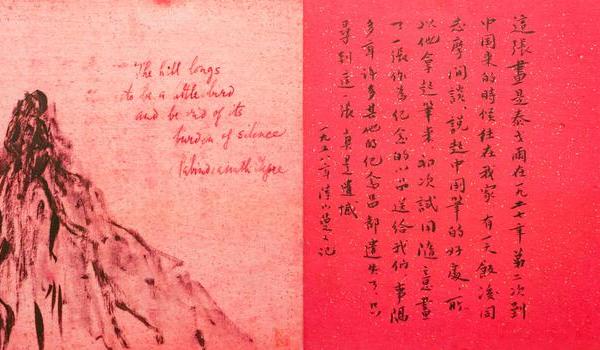 The hill longs
to be a little bird
and be rid of its
burden of silence
Rabindranath Tagore
這張畫是泰戈爾在一九二七年第二次到
中国來的時候住在我家有天飯後同
志摩閒談說起中国筆的好處所
以他拿起筆來初次試用隨意畫
了一張作為紀念的小品送給我們事隔
多年許多其他的紀念品都遺失了只
尋到這張真是遺憾
一九五八年陸小曼記